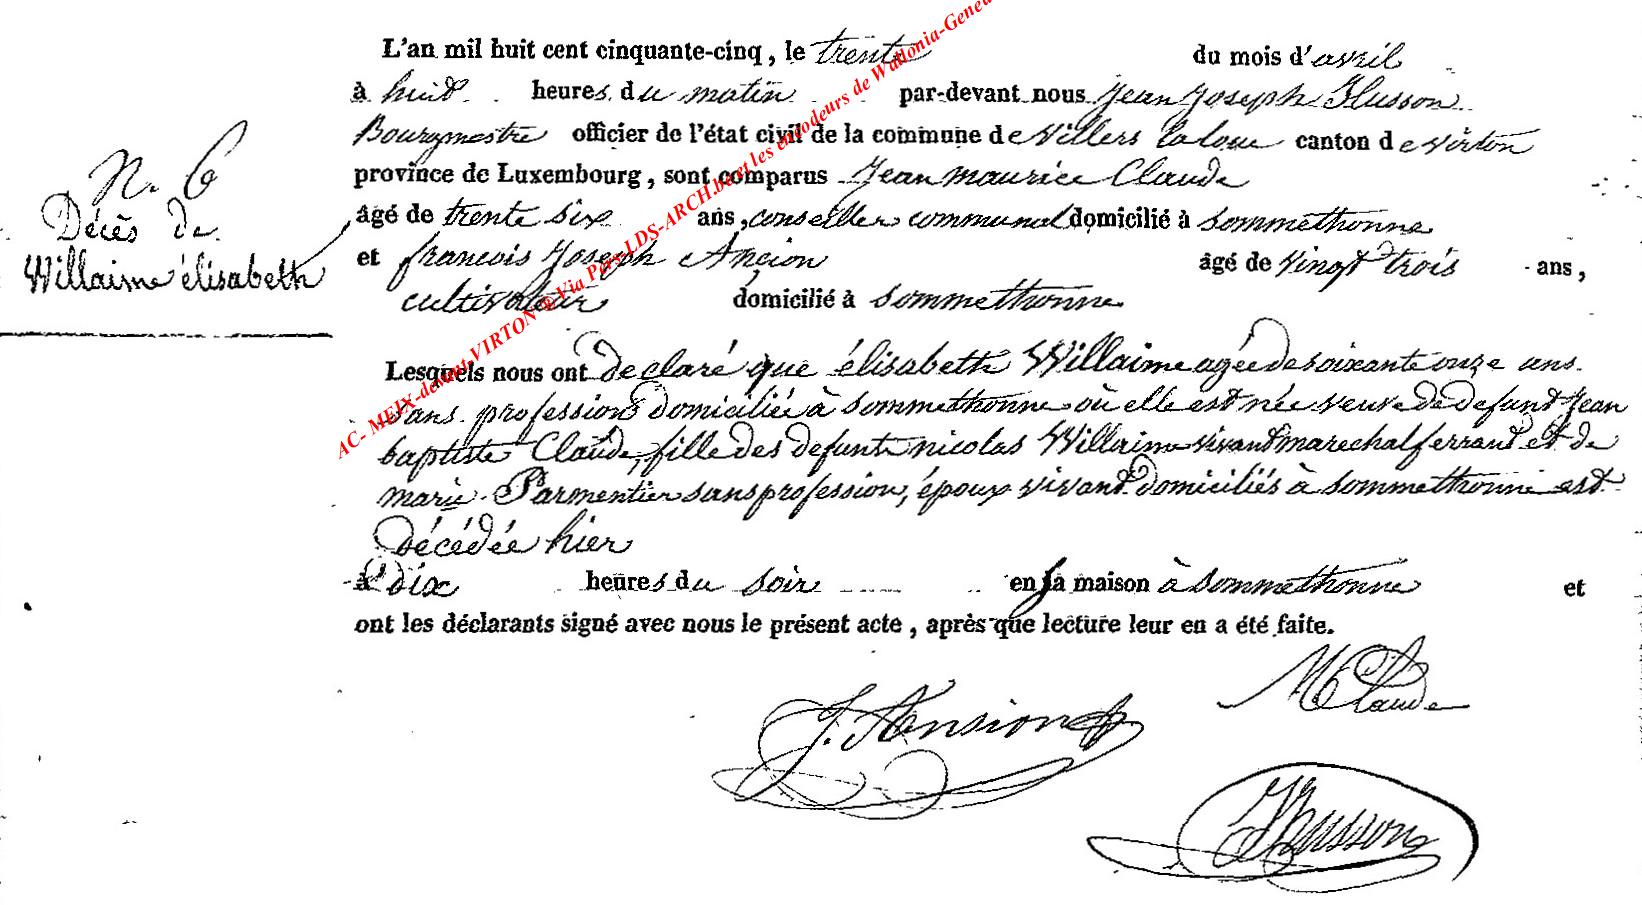 N. 6
Décès de
Willaime élisabeth
L'an mil huit cent cinquante-cinq, le trente du mois d'avril
à huit heures du matin par-devant nous Jean Joseph Husson
Bourgmestre officier de l'état civil de la commune de Villers la loue canton de virton
province de Luxembourg, sont comparus Jean maurice Claude
âgé de trente six ans, conseiller communal domicilié à sommethonne
et francois Joseph Ancion âgé de vingt trois ans,
cultivateur domicilié à sommethonne
Lesquels nous ont declaré que élisabeth Willaime agée de soixante onze ans
sans profession domiciliée à sommethonne où elle est née veuve de defunt Jean
baptiste Claude, fille des defunts nicolas Willaime vivant marechal ferrant et de
marie Parmentier sans profession, époux vivant domiciliés à sommethonne est
décédée hier
à dix heures du soir en sa maison à sommethonne et
ont les déclarants signé avec nous le présent acte, après que lecture leur en a été faite.
M Claude
J. Ansion
JHusson
AC- MEIX-devant-VIRTON @ Via Pers-LDS-ARCH.be et les encodeurs de Wallonia-Gene